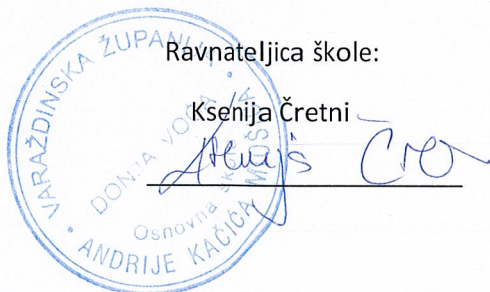 Ravnateljica škole:
Ksenija Čretni
VARAŽDINSKA ŽUPANIJA
DONJA VOĆA
Osnovna škola
ANDRIJE KAČIĆA MIOŠIĆA